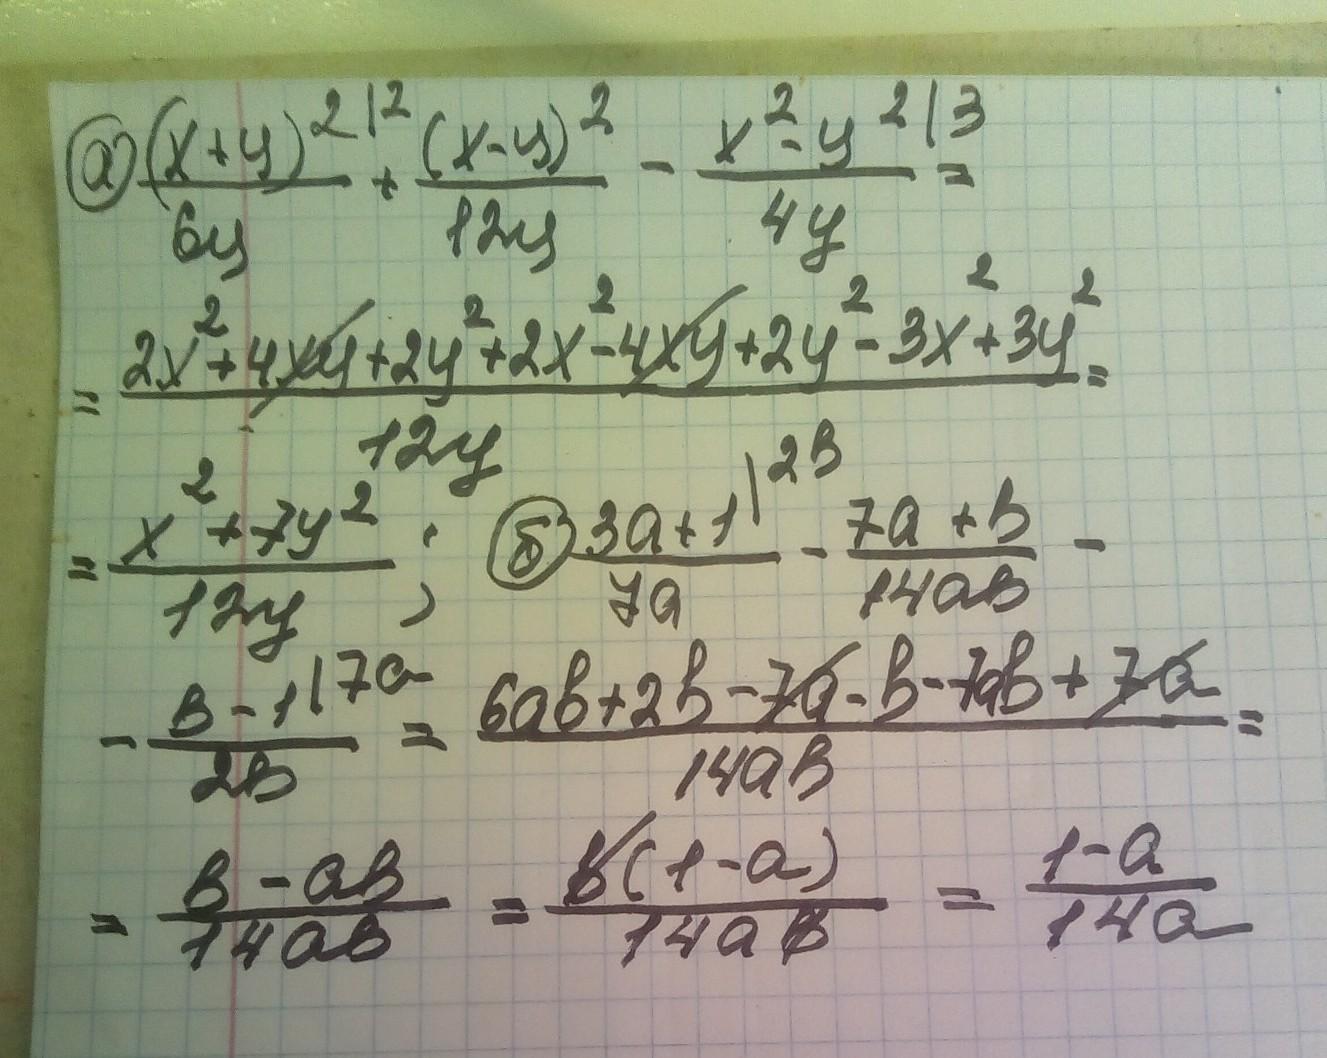 а) (x+y)²|2/6y + (x-y)²/12y - x²-y²|3/4y =
= 2x²+4xy+2y²+2x²-4xy+2y²-3x²+3y²/12y =
= x²+7y²/12y ; б) 3a+1|2b/7a - 7a+b/14ab -
- b-1|7a/2b = 6ab+2b-7a-b-7ab+7a/14ab =
= b-ab/14ab = b(1-a)/14ab = 1-a/14a